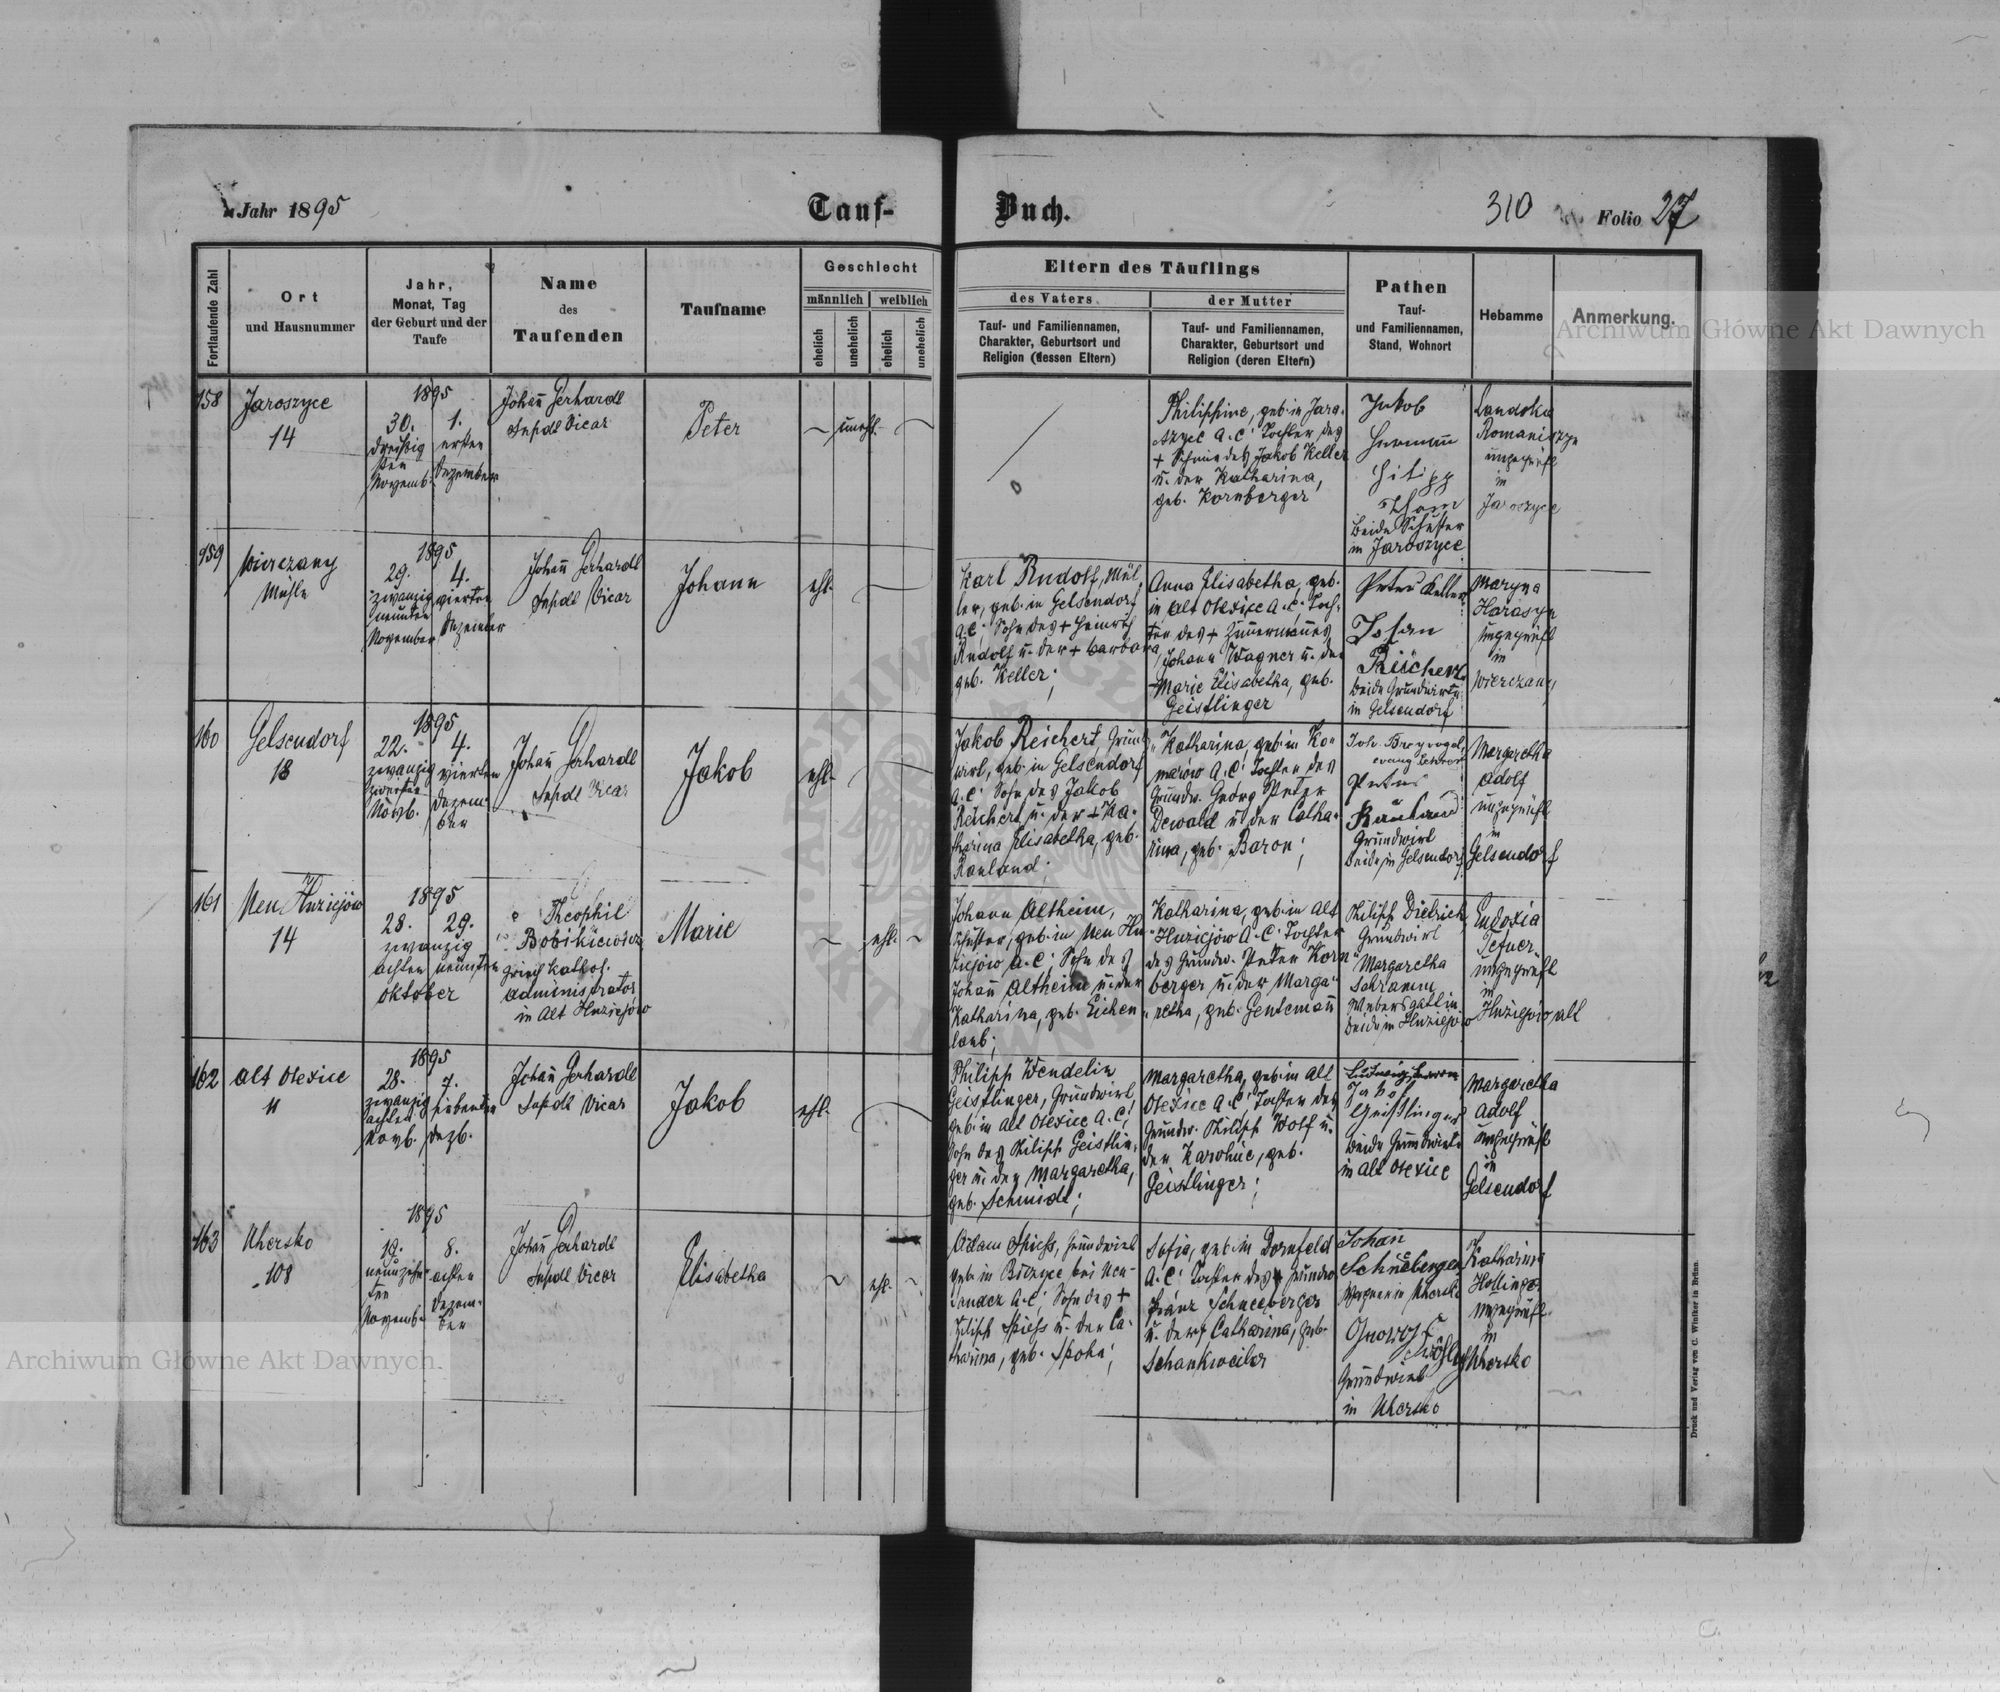 Jahr 1895
Tauf-
Buch.
310
Folio 27
Fortlaufende Zahl
Ort
und Hausnummer
Jahr,
Monat, Tag
der Geburt und der
Taufe
Name
des
Taufenden
Taufname
Geschlecht
männlich
weiblich
ehelich
unehelich
ehelich
unehelich
Eltern des Täuflings
des Vaters
Tauf- und Familiennamen,
Charakter, Geburtsort und
Religion (dessen Eltern)
der Mutter
Tauf- und Familiennamen,
Charakter, Geburtsort und
Religion (deren Eltern)
Pathen
Tauf-
und Familiennamen,
Stand, Wohnort
Hebamme
Anmerkung.
158
Jaroszyce
14
1895
30.
dreißig
sten
Novemb.
1.
ersten
Dezember
Johañ Gerhardt
Vicar
Peter
unehl.
Philippine, geb. in Jaro-
szyce A.C. Tochter des
+ Schmiedes Jakob Keller
u. der Katharina,
geb. Kornberger
Jakob
Filipp
beide Schuster
in Jaroszyce
Romaniszyn
ungeprüft
in
Jaroszyce
159
Wierczany
Mühle
1895
29.
zwanzig
neunten
November
4.
vierten
Dezember
Johañ Gerhardt
Vicar
Johann
ehl.
Karl Rudolf, Mül-
ler, geb. in Gelsendorf
A.C. Sohn des + Heinrich
Rudolf u. der + Barbara
geb. Keller;
Anna Elisabetha, geb.
in Alt Olexice A.C. Toch-
ter des + Zimmermannes
Johann Wagner u. der
Marie Elisabetha, geb.
Geistlinger
Peter Keller
Johan
Reichert
beide Grundwirte
in Gelsendorf
Maryna
Harasyn
ungeprüft
in
Wierczany
160
Gelsendorf
18
1895
22.
zwanzig
zweiten
Novb.
4.
vierten
Dezem-
ber
Johañ Gerhardt
Vicar
Jakob
ehl.
Jakob Reichert, Grund-
wirt, geb. in Gelsendorf
A.C. Sohn des Jakob
Reichert u. der + Ka-
tharina Elisabetha, geb.
Rauland;
Katharina, geb. in Ko-
marow A.C. Tochter des
Grundw. Georg Peter
Dewald u. der Catha-
rina, geb. Baron;
evang. Lehrer
Peter
Rauland
Grundwirt
beide in Gelsendorf
Margaretha
Adolf
ungeprüft
in
Gelsendorf
161
Neu Huziejów
14
1895
28.
zwanzig
achten
Oktober
29.
neunten
Theophil
Bobikiewicz
griech kathol.
Administrator
in Alt Huziejów
Marie
ehl.
Johann Altheim,
Schuster, geb. in Neu Hu-
ziejów A.C. Sohn des
Johañ Altheim u. der
Katharina, geb. Eichen-
laub;
Katharina, geb. in Alt
Huziejów A.C. Tochter
des Grundw. Peter Korn-
berger u. der Marga-
retha, geb. Gentemañ
Philipp Dietrich
Grundwirt
Margaretha
Webersgattin
beide in Huziejów
Eudoxia
ungeprüft
in
Huziejów alt
162
Alt Olexice
11
1895
28.
zwanzig
achten
Novb.
7.
siebenten
Dezb.
Johañ Gerhardt
Vicar
Jakob
ehl.
Philipp Wendelin
Geistlinger, Grundwirt,
geb. in Alt Olexice A.C.
Sohn des Philipp Geistlin-
ger u. der Margaretha,
geb. Schmidt;
Margaretha, geb. in Alt
Olexice A.C. Tochter des
Grundw. Philipp Wolf u.
der Karoline, geb.
Geistlinger;
Jakob
Geistlinger
beide Grundwirte
in Alt Olexice
Margaretha
Adolf
ungeprüft
in
Gelsendorf
163
Uhersko
108
1895
19.
neunzehn-
ten
Novemb.
8.
achten
Dezem-
ber
Johañ Gerhardt
Vicar
Elisabetha
ehl.
Adam Spieß, Grundwirt
geb. in Biczyce bei Neu-
Sandez A.C. Sohn des +
Philipp Spieß u. der Ca-
tharina, geb.
Sofia, geb. in Dornfeld
A.C. Tochter des + Grundw.
Franz Schneeberger
u. der + Catharina, geb.
Schankweiler
Johañ
Schneberger
Wagner in Uhersko
Grundwirt
in Uhersko
Katharina
Hollinger
ungeprüft
in
Uhersko
Druck und Verlag von C. Winiker in Brünn.
Archiwum Główne Akt Dawnych
Archiwum Główne Akt Dawnych